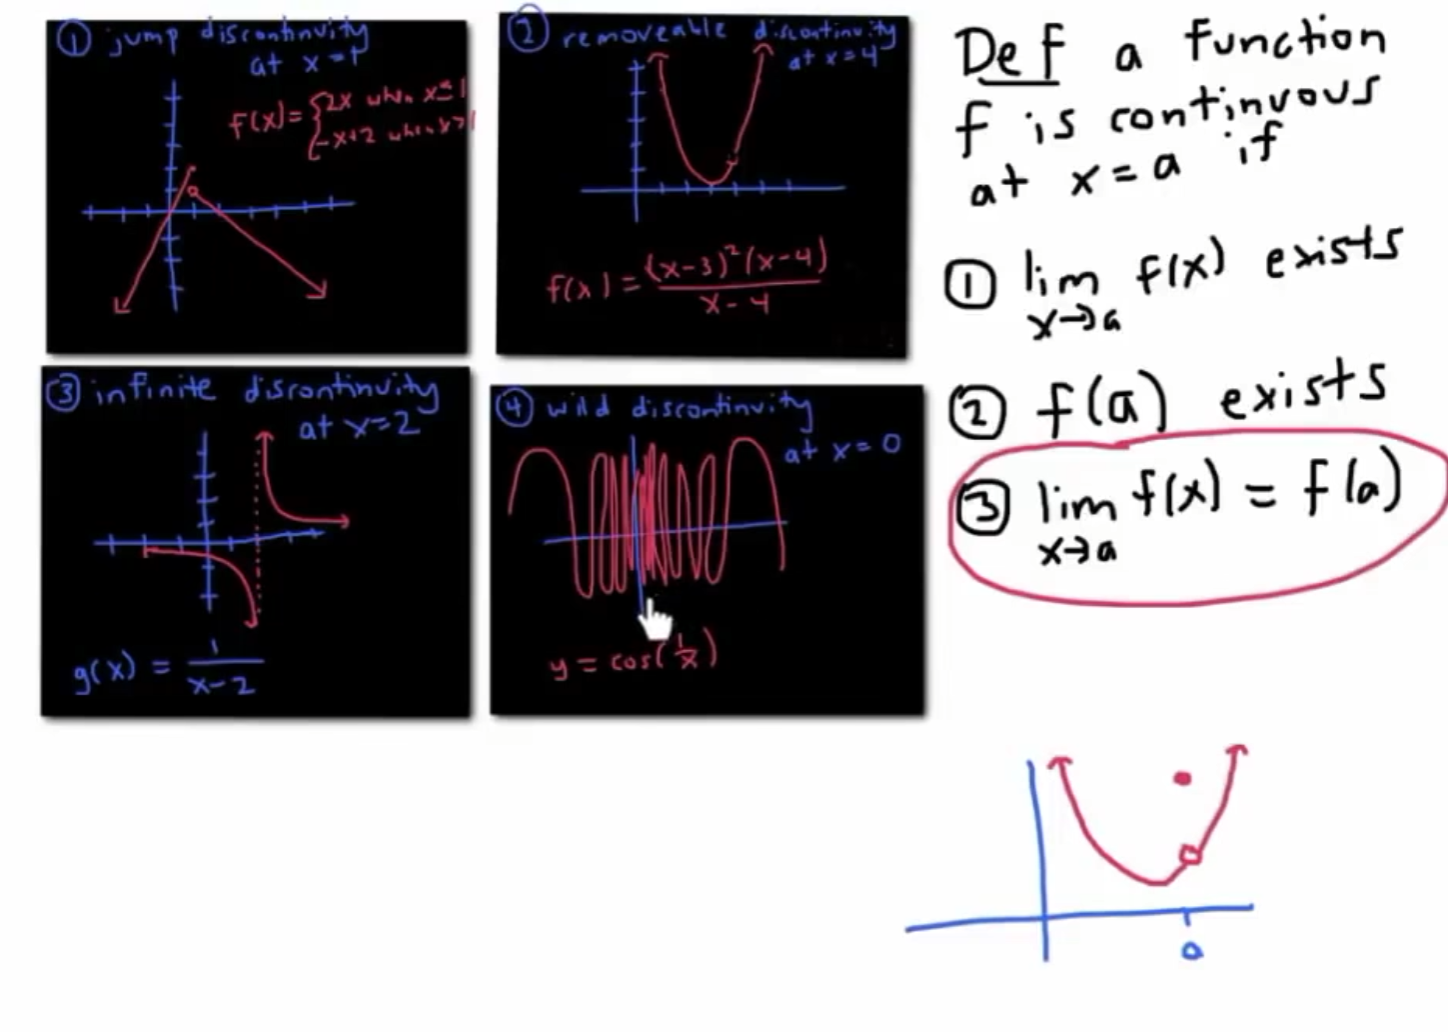 ① jump discontinuity
at x=1
f(x)= { 2x when x≤1
-x+2 when x>1
② removeable discontinuity
at x=4
f(x) = (x-3)²(x-4)
x-4
③ infinite discontinuity
at x=2
g(x) = 1
x-2
④ wild discontinuity
at x=0
y = cos(1/x)
Def a function
f is continuous
at x=a if
① lim f(x) exists
x→a
② f(a) exists
③ lim f(x) = f(a)
x→a
a